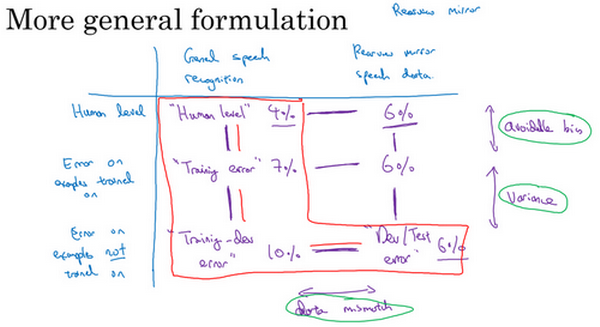 More general formulation
Rearview mirror
General speech recognition
Rearview mirror speech data.
Human level
"Human level" 4%
6%
avoidable bias
Error on examples trained on
"Training error" 7%
6%
Variance
Error on examples not trained on
"Training-dev error" 10%
"Dev/Test error" 6%
data mismatch